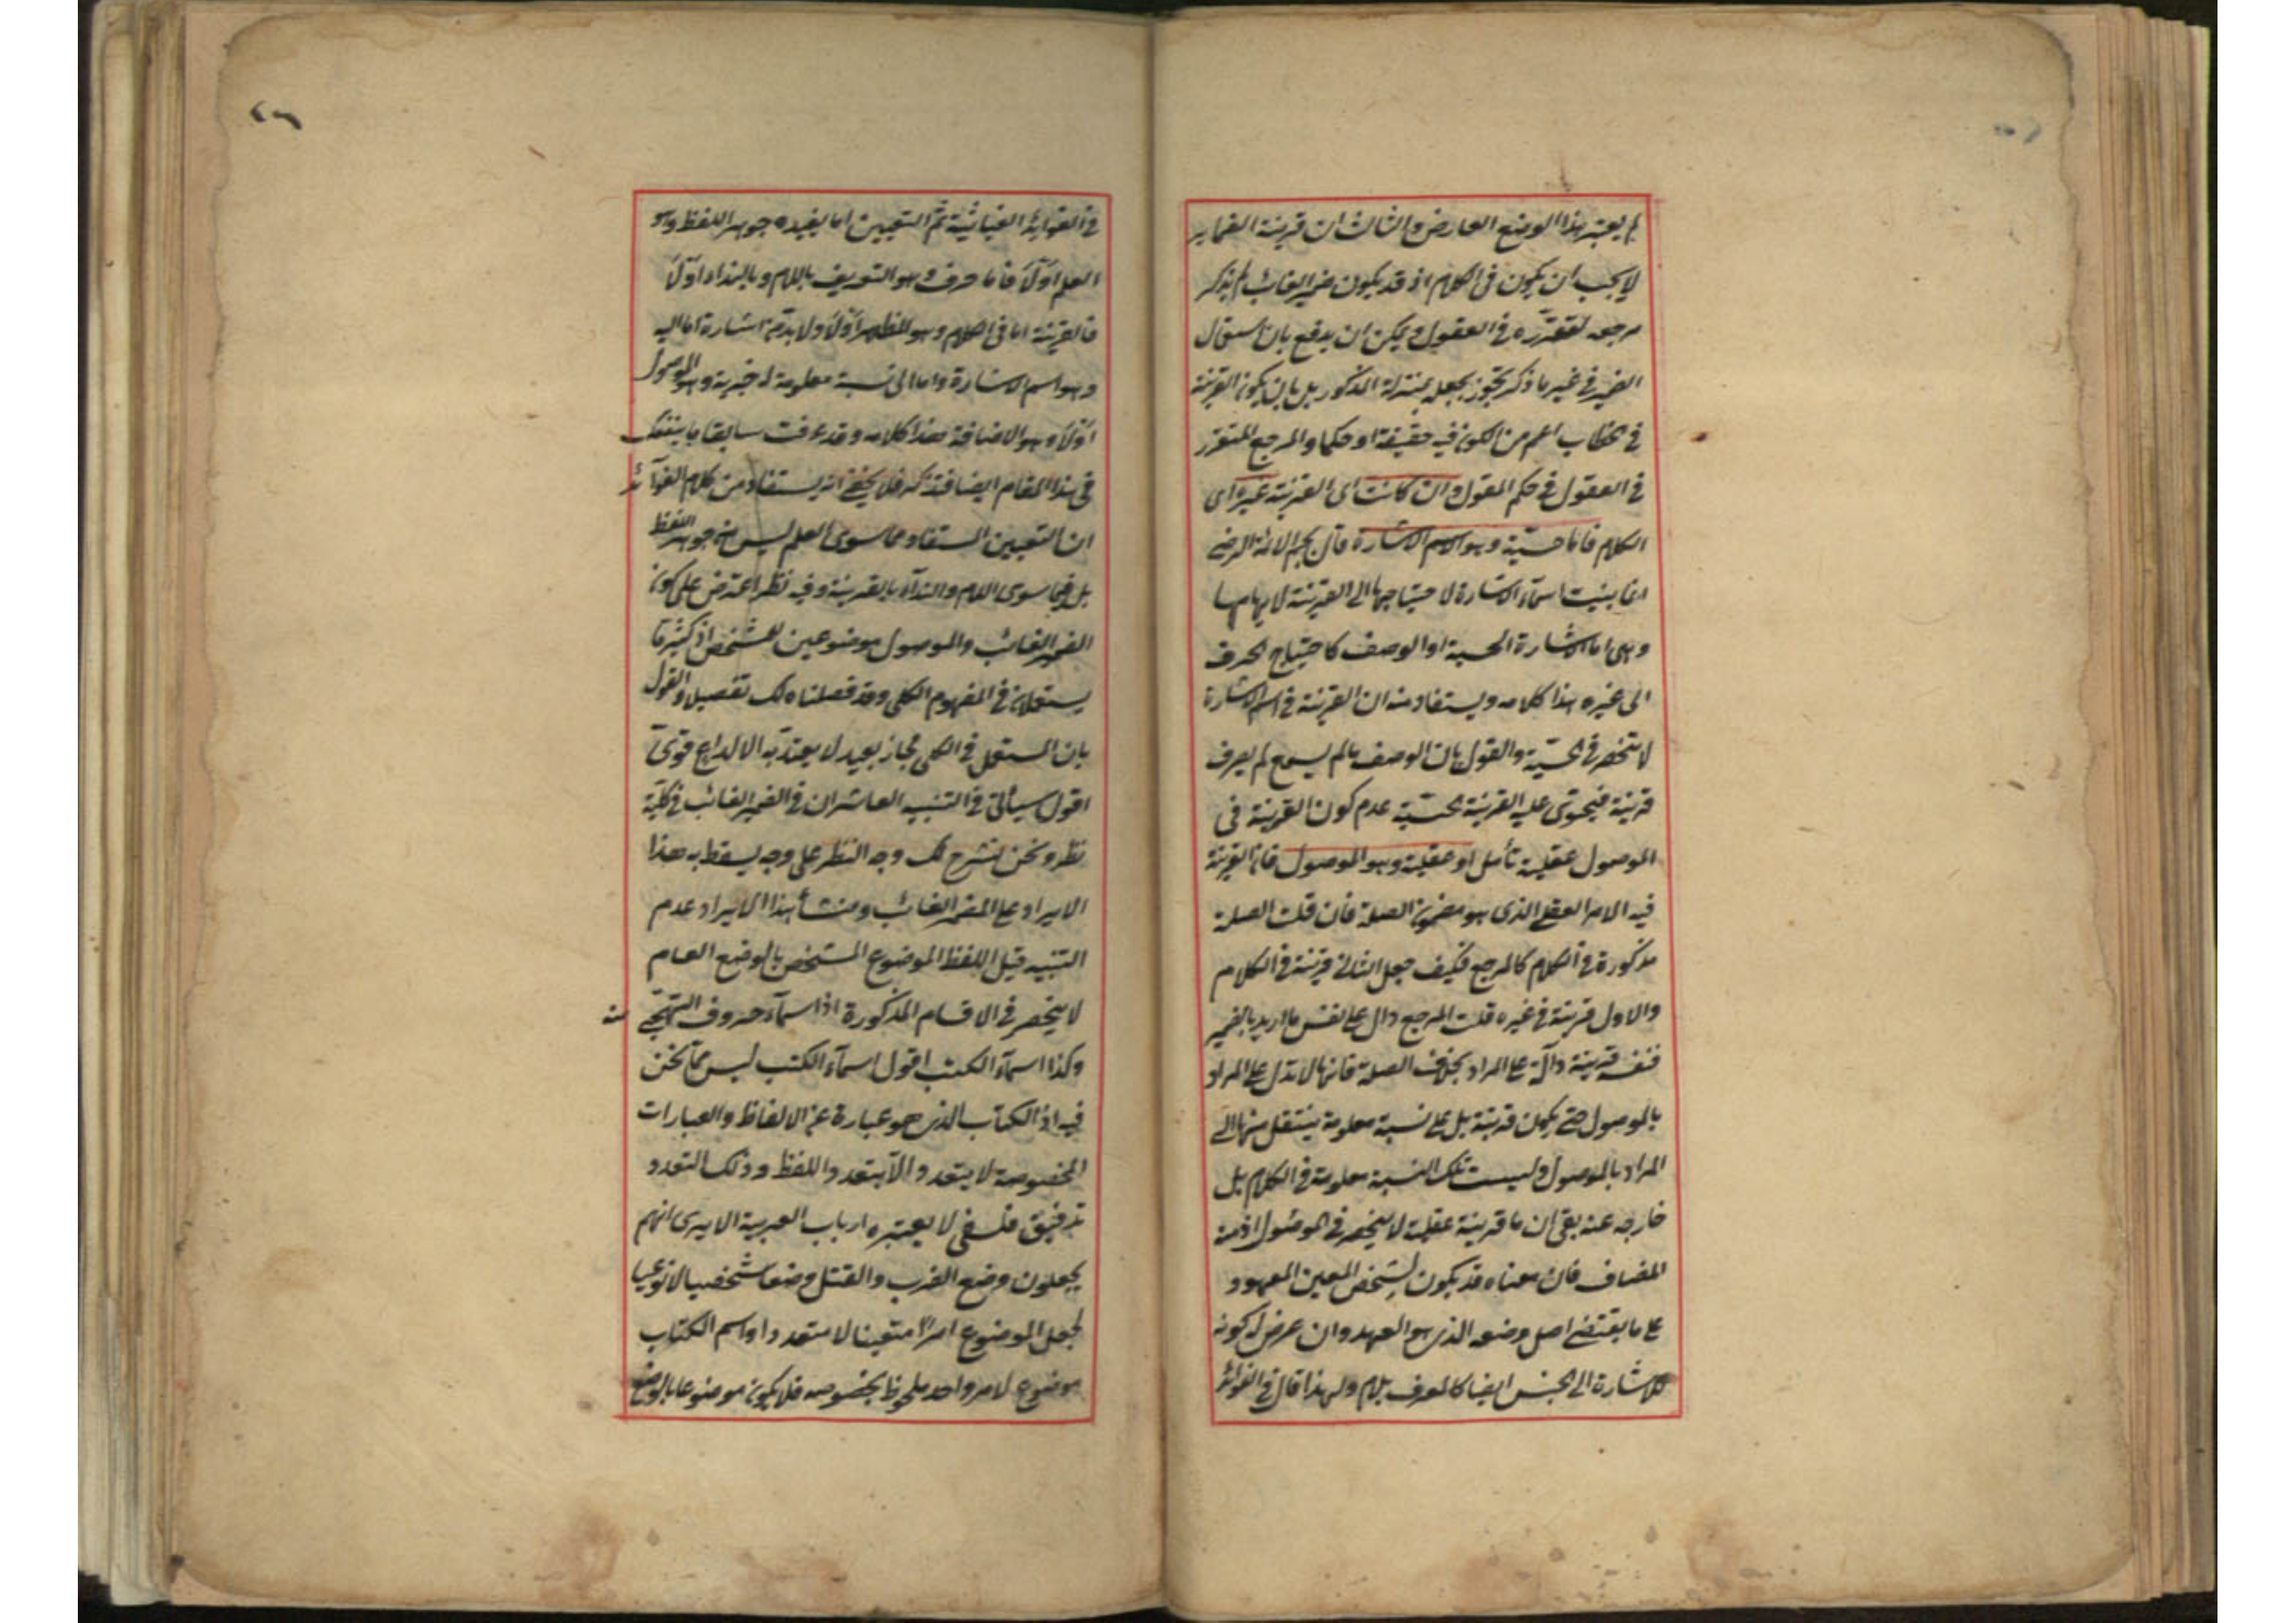 لم يعتبر هذا الوضع العارض والثالث ان قرينة الضماير
لا يجب ان يكون في الكلام اذ قد يكون ضمير الغائب لم يذكر
مرجعه لتقرره في العقول ويمكن ان يدفع بان استعمال
الضمير في غير ما ذكر تجوز بجعله بمنزلة المذكور بل بان يكون القرينة
في الخطاب اعم من الكون فيه حقيقة او حكما والمرجع المتقرر
في العقول في حكم المقول وان كانت اى القرينة غيره اى
الكلام فاما حسية وهو الاسم الاشارة قال نجم الائمة الرضى
انما بنيت اسمآء الاشارة لاحتياجها الى القرينة لابهامها
وهى اما الاشارة الحسية او الوصف كاحتياج الحرف
الى غيره هذا كلامه ويستفاد منه ان القرينة في اسم الاشارة
لا تنحصر في الحسية والقول بان الوصف ما لم يسمع لم يعرف
قرينة فيحوى عليه القرينة الحسية عدم كون القرينة فى
الموصول عقلية تأمل او عقلية وهو الموصول فان القرينة
فيه الامر العقلي الذى هو مضمون الصلة فان قلت الصلة
مذكورة في الكلام كالمرجع فكيف جعل الثاني قرينة في الكلام
والاول قرينة في غيره قلت المرجع دال على نفس ما اريد بالضمير
فنفسه قرينة دآلة على المراد بخلاف الصلة فانها لا تدل على المراد
بالموصول حتى يكون قرينة بل على نسبة معلومة ينتقل منها الى
المراد بالموصول وليست تلك النسبة معلومة في الكلام بل
خارجه عنه بقى ان ما قرينة عقلية لا ينحصر في الموصول اذ منه
المضاف فان معناه قد يكون لشخص المعين المعهود
على ما يقتضى اصل وضعه الذى هو العهد وان عرض له كونه
للاشارة الى الجنس ايضا كالمعرف بلام ولهذا قال في الفوائد
في الفوايد الغياثية ثم التعيين اما يفيده جوهر اللفظ وهو
العلم اوّلا فاما حرف وهو التعريف باللام وبالنداء اوّلا
فالقرينة اما في الكلام وهو المظهر اوّلا ولا بد ثمة اشارة اما اليه
وهو اسم الاشارة واما الى نسبة معلومة له خبرية وهو الموصول
اوّلا وهو الاضافة هذا كلامه وقد عرفت سابقا ما ينفعك
في هذا المقام ايضا فتذكر فلا يخفى انه يستفاد من كلام الفوآئد
ان التعيين المستفاد مما سوى العلم ليس من جوهر اللفظ
بل فيما سوى اللام والندآء بالقرينة وفيه نظر اعترض على كون
الضمير الغائب والموصول موضوعين لمشخص اذ كثيرا ما
يستعملان في المفهوم الكلي وقد فصلناه لك تفصيلا والقول
بان المستعمل في الكلي مجاز بعيد لا يعتد به الا لداع قوىّ
اقول سيأتى في التنبيه العاشر ان في الضمير الغائب في كلية
نظر ونحن نشرح لك وجه النظر على وجه يسقط به هذا
الايراد على المضمر الغائب ومنشأ هذا الايراد عدم
التنبيه قيل اللفظ الموضوع المشخص بالوضع العام
لا ينحصر في الاقسام المذكورة اذ اسمآء حروف التهجى منه
وكذا اسمآء الكتب اقول اسمآء الكتب ليس مما نحن
فيه اذ الكتاب الذى هو عبارة عن الالفاظ والعبارات
المخصوصة لا يتعدد الا بتعدد اللفظ وذلك التعدد
تدقيق فلسفى لا يعتبره ارباب العربية الا يرى انهم
يجعلون وضع الضرب والقتل وضعا شخصيا لا نوعيا
لجعل الموضوع امرا متعينا لا متعددا واسم الكتاب
موضوع لامر واحد ملحوظ بخصوصه فلا يكون موضوعا بالوضع